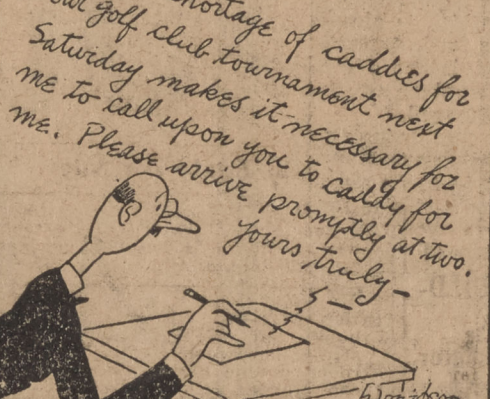 shortage of caddies for
our golf club tournament next
Saturday makes it necessary for
me to call upon you to caddy for
me. Please arrive promptly at two.
Yours truly—